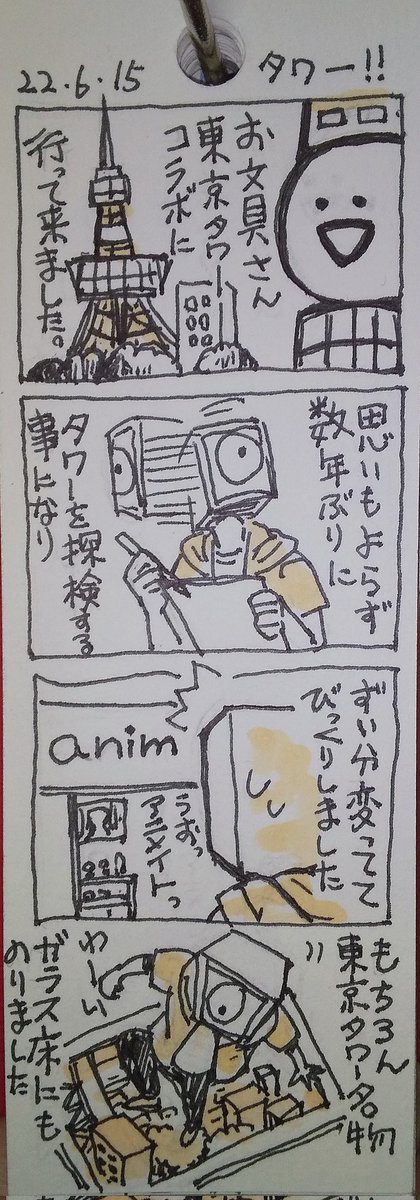 22.6.15
タワー!!
お文具さん
東京タワー
コラボに
行って来ました。
思いもよらず
数年ぶりに
タワーを探検する
事になり
ずい分変ってて
びっくりしました
anim
うおっ
アニメイトっ
もちろん
東京タワー名物
わーい
ガラス床にも
のりました